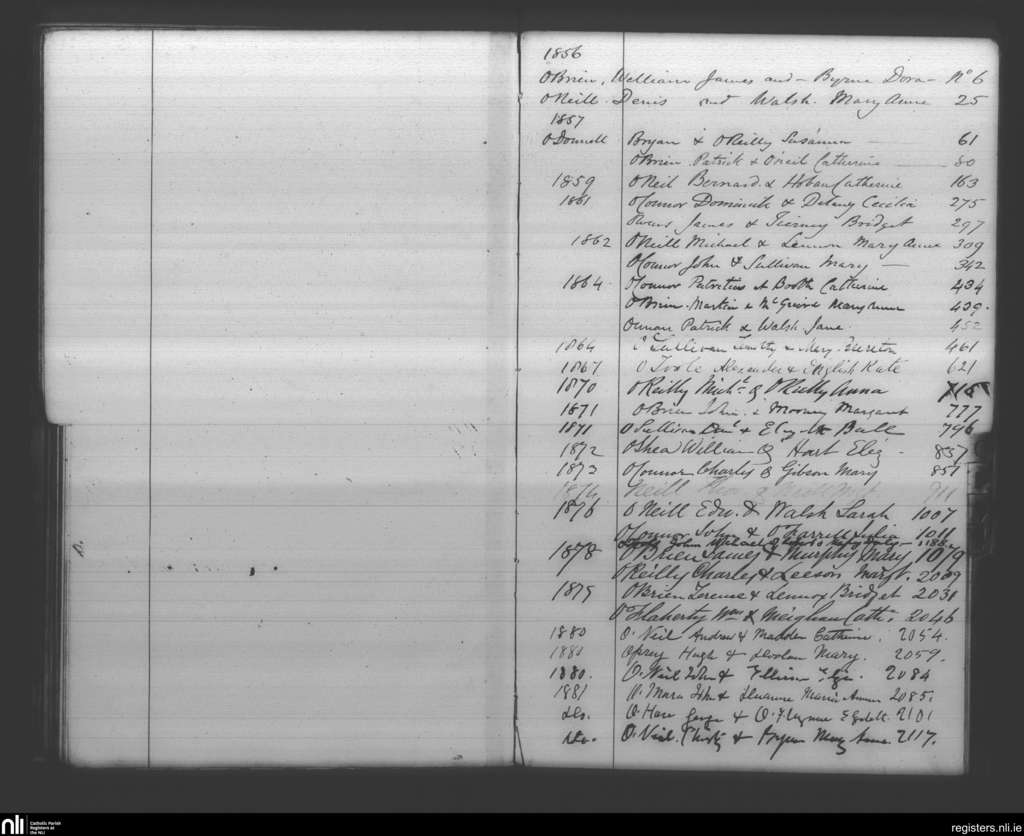 1856
OBrien, William James and - Byrne Dora - No 6
ONeill Denis and Walsh. Mary Anne 25
1857
ODonnell Bryan & OReilly Susanna 61
OBrien Patrick & Oneil Catherine 80
1859 ONeil Bernard & Hoban Catherine 163
1861 OConnor Dominick & Delany Cecilia 275
Owens James & Tierney Bridget 297
1862 ONeill Michael & Lennon Mary Anne 309
OConnor John & Sullivan Mary 342
1864 OConnor Patritius et Booth Catherine 434
OBrien Martin & McGuire Mary Anne 439
Patrick & Walsh Jane 452
1864 O'Sullivan & Mary 461
1867 OToole Alexander & English Kate 621
1870 OReilly Michl & OReilly Anna 715
1871 OBrien John & Mooney Margaret 777
1871 OSullivan & Bull 796
1872 OShea William & Hart Eliz 837
1873 OConnor Charles & Gibson Mary 851
1874 Neill 911
1876 ONeill Edw. & Walsh Sarah 1007
OConnor John & OFarrell Julia 1011
John Michael
1878 OBrien James & Murphy Mary 1079
OReilly Charles & Leeson Margt. 2009
1879 OBrien Terence & Lennox Bridget 2031
O'Flaherty Wm & Meighan Cathe 2046
1880 O'Neil Andrew & Madden Catherine. 2054.
1880 Hugh & Mary. 2059.
1880. O'Neil John & 2084
1881 O'Mara John & Maria Anne 2085.
Do. O'Hare George & O'Flynn 2101
Do. O'Neil. Christy & Mary Anne. 2117.
nli
Catholic Parish
Registers at
the NLI
registers.nli.ie